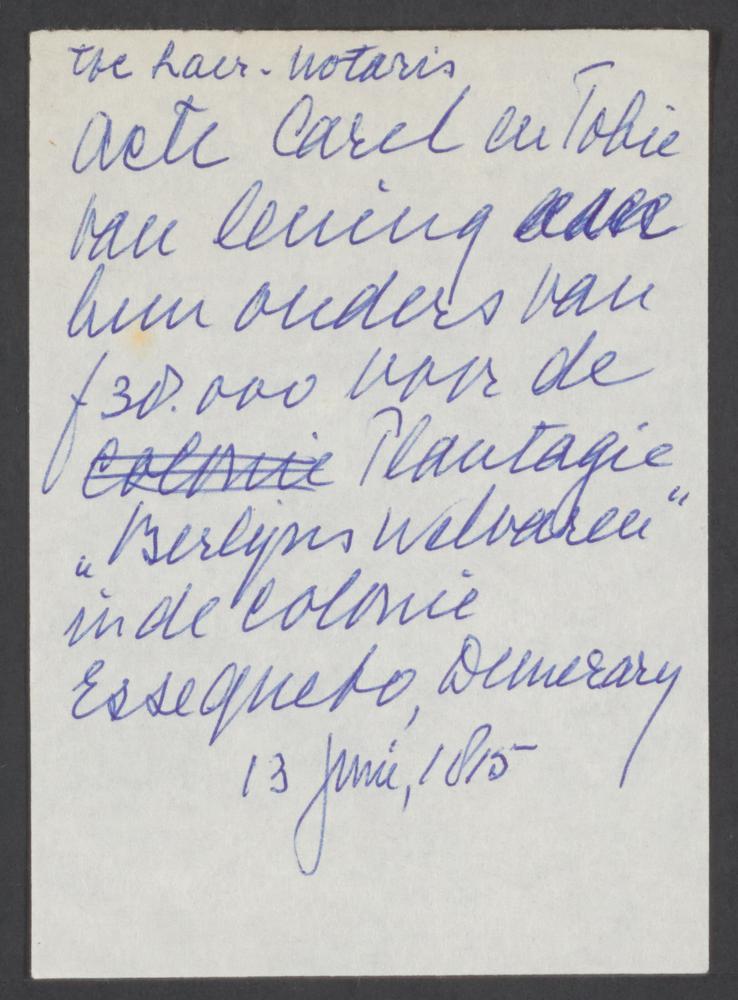 toe Laer - Notaris
Acte Carel en Tobie
van lening aan
hun ouders van
f 30.000 voor de
colonie Plantagie
„Berlijns welvaren"
in de colonie
Essequebo, Demerary
13 Juni, 1815